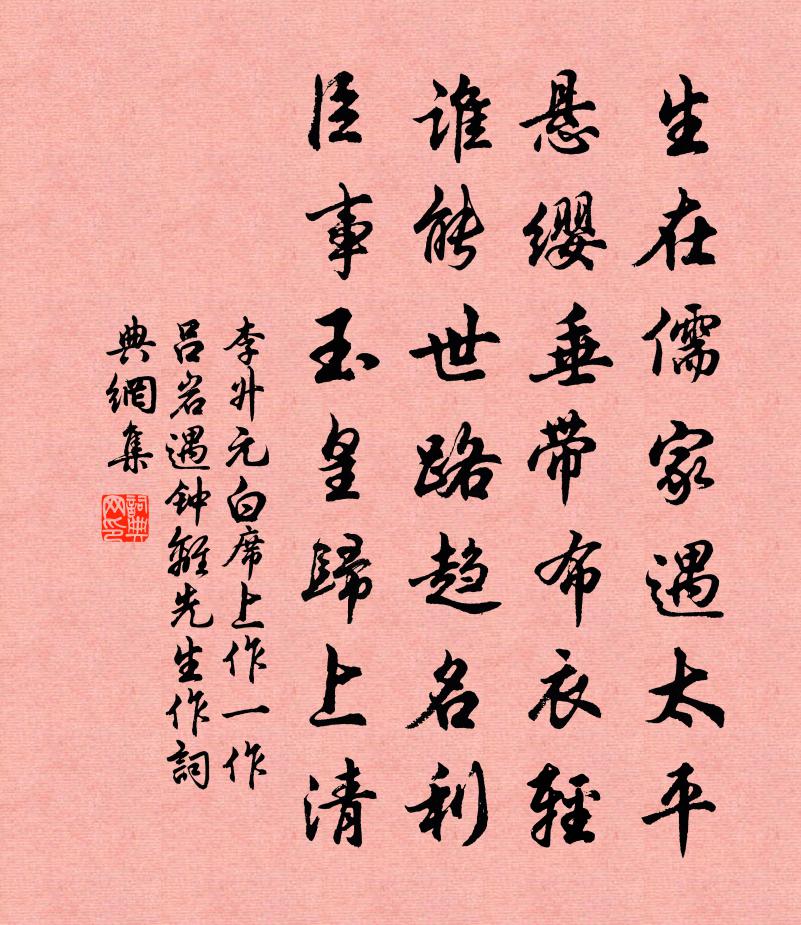 生在儒家遇太平
悬缨垂带布衣轻
谁能世路趋名利
臣事玉皇歸上清
李升元白席上作一作
吕岩遇钟離先生作詞
典網集
詞典
网印